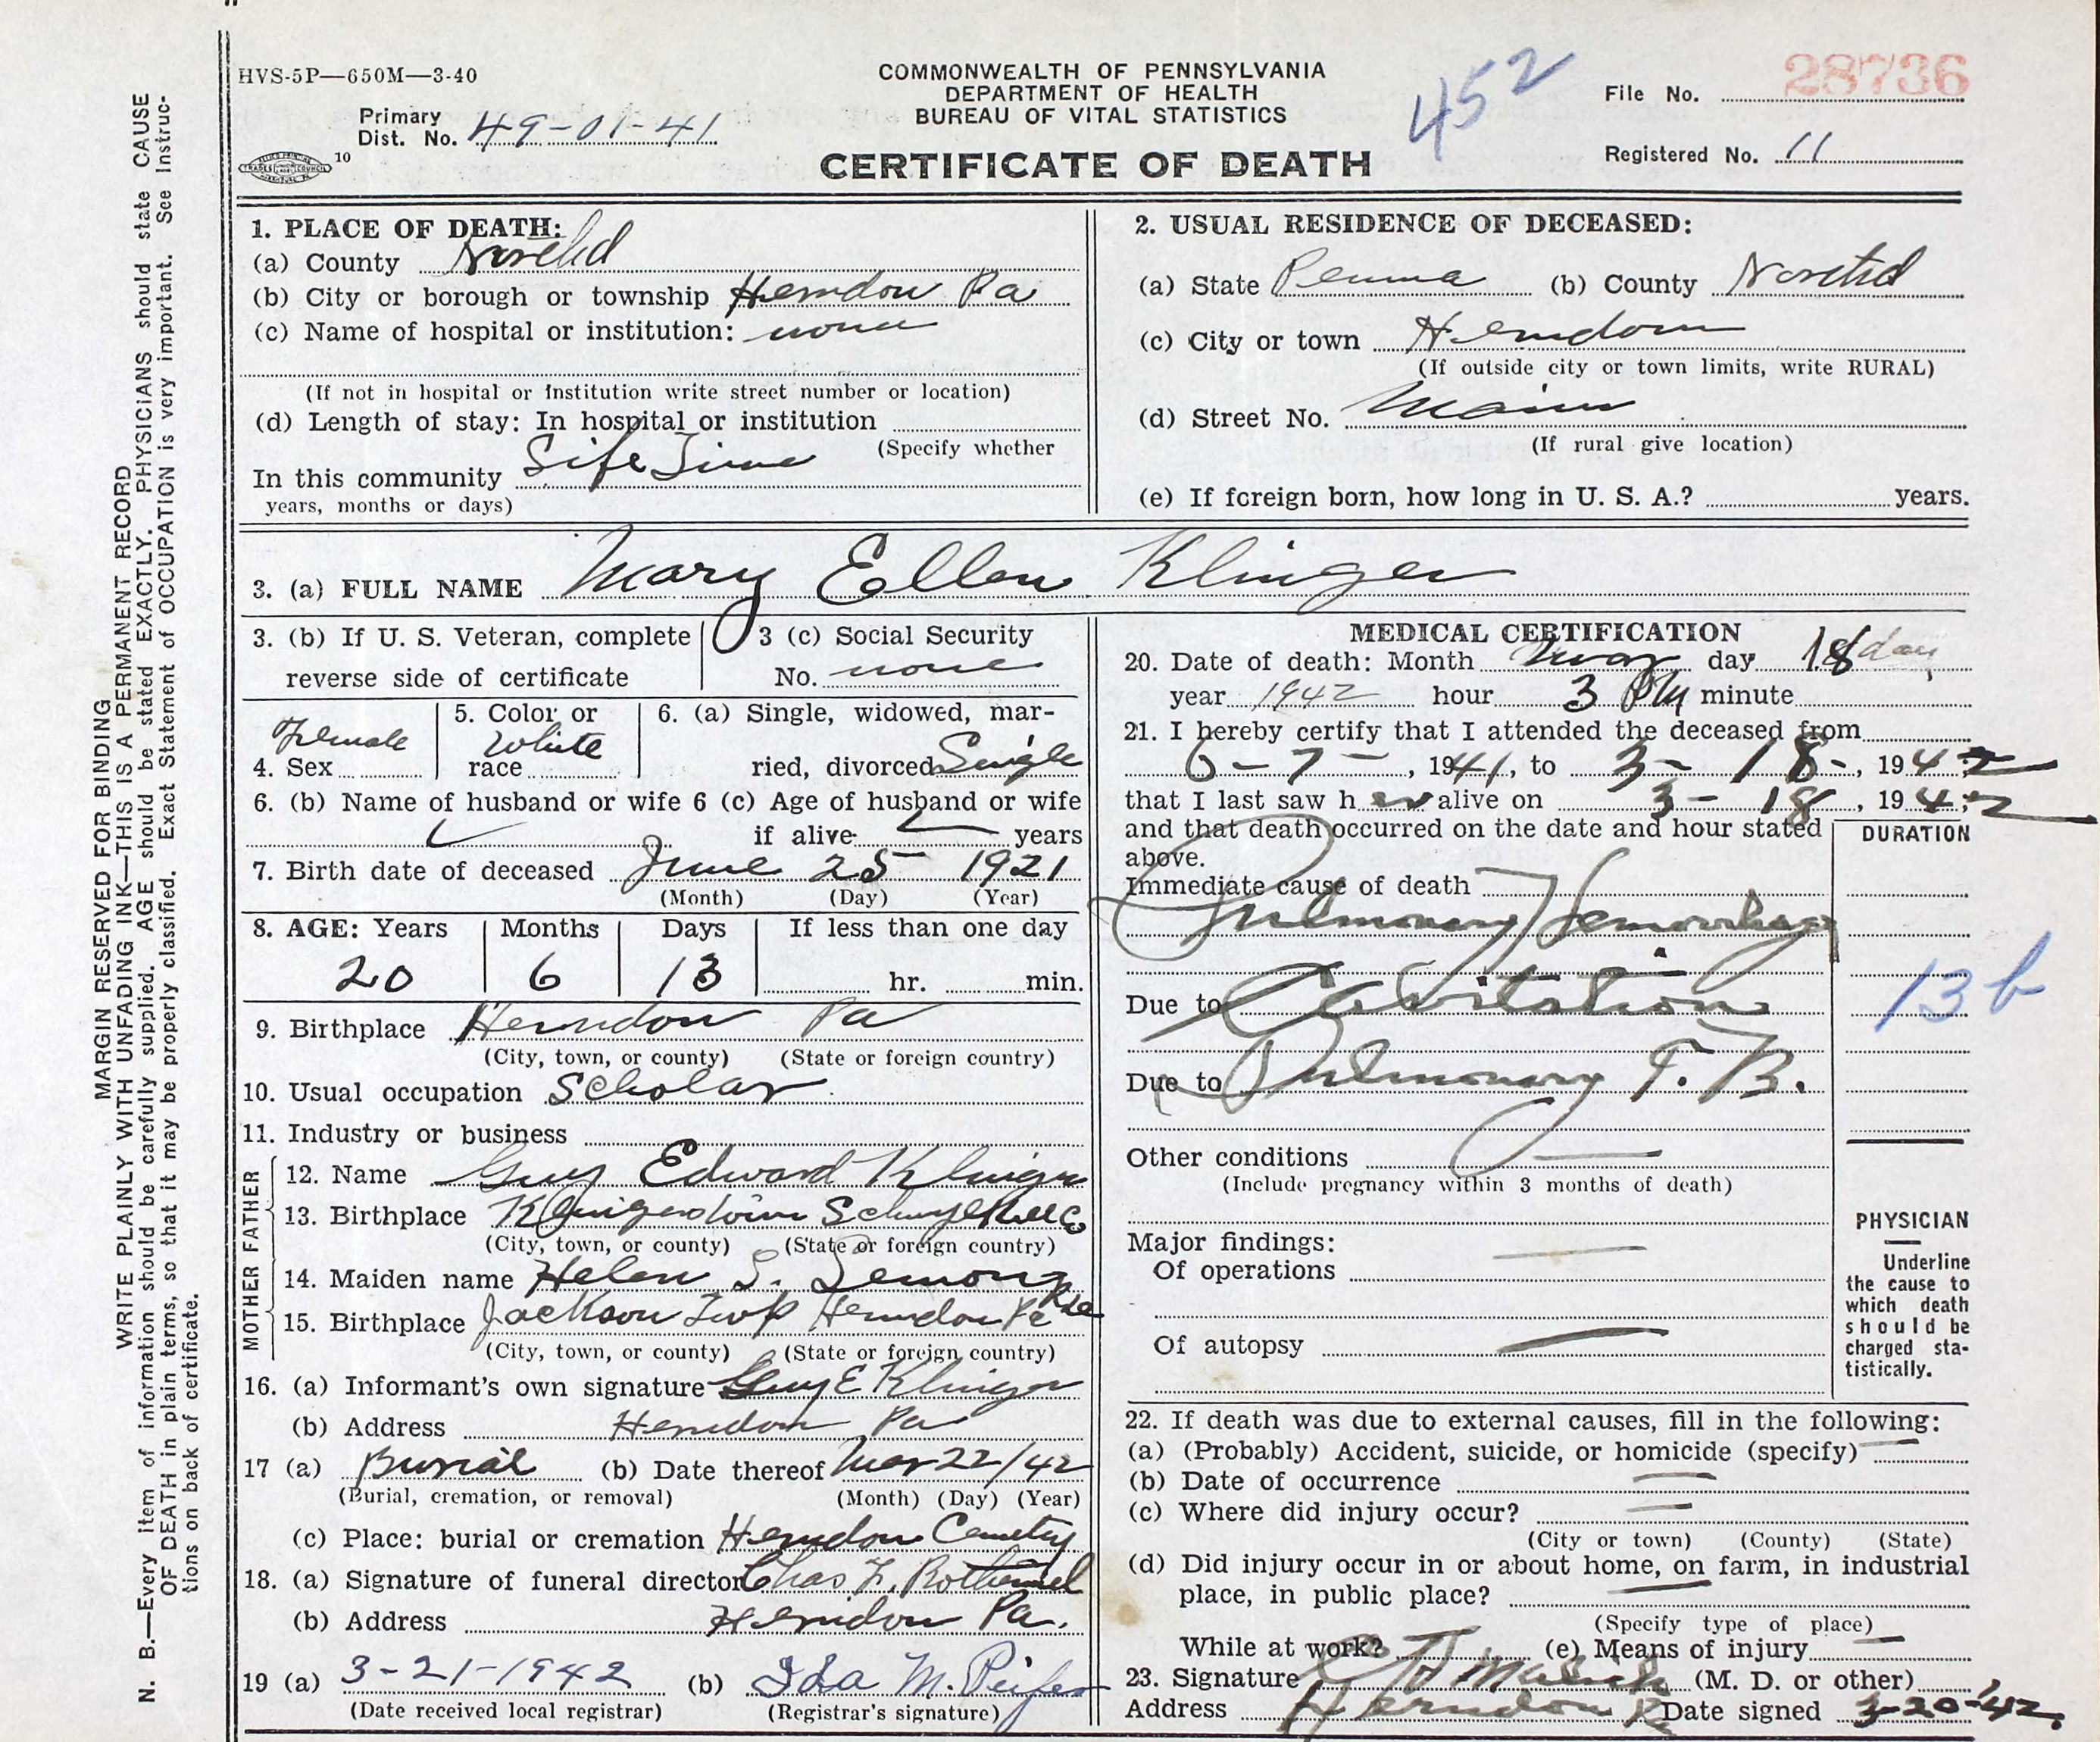 HVS-5P—650M—3-40
COMMONWEALTH OF PENNSYLVANIA
DEPARTMENT OF HEALTH
BUREAU OF VITAL STATISTICS
CERTIFICATE OF DEATH
452
File No. 28736
Registered No. 11
Primary
Dist. No. 49-01-41
10
1. PLACE OF DEATH:
(a) County
(b) City or borough or township Herndon Pa
(c) Name of hospital or institution: none
(If not in hospital or institution write street number or location)
(d) Length of stay: In hospital or institution
(Specify whether
In this community Life Time
years, months or days)
2. USUAL RESIDENCE OF DECEASED:
(a) State Penna (b) County
(c) City or town Herndon
(If outside city or town limits, write RURAL)
(d) Street No. Main
(If rural give location)
(e) If foreign born, how long in U. S. A.? years.
3. (a) FULL NAME Mary Ellen Klinger
3. (b) If U. S. Veteran, complete
reverse side of certificate
3 (c) Social Security
No. none
4. Sex Female
5. Color or
race White
6. (a) Single, widowed, mar-
ried, divorced Single
6. (b) Name of husband or wife 6 (c) Age of husband or wife
if alive years
7. Birth date of deceased June 25 1921
(Month) (Day) (Year)
8. AGE: Years Months Days If less than one day
20 6 13 hr. min.
9. Birthplace Herndon Pa
(City, town, or county) (State or foreign country)
10. Usual occupation Scholar
11. Industry or business
FATHER
12. Name Guy Edward Klinger
13. Birthplace Klingerstown Schuylkill Co
(City, town, or county) (State or foreign country)
MOTHER
14. Maiden name Helen S.
15. Birthplace Jackson Twp Herndon Pa
(City, town, or county) (State or foreign country)
16. (a) Informant's own signature Guy E Klinger
(b) Address Herndon Pa
17 (a) Burial (b) Date thereof Mar 22/42
(Burial, cremation, or removal) (Month) (Day) (Year)
(c) Place: burial or cremation Herndon Cemetery
18. (a) Signature of funeral director Chas F. Rothermel
(b) Address Herndon Pa.
19 (a) 3-21-1942 (b) Ida M. Peifer
(Date received local registrar) (Registrar's signature)
MEDICAL CERTIFICATION
20. Date of death: Month Mar day 18 day
year 1942 hour 3 PM minute
21. I hereby certify that I attended the deceased from
6-7-, 1941, to 3-18-, 1942
that I last saw her alive on 3-18, 1942
and that death occurred on the date and hour stated
above.
DURATION
Immediate cause of death
Pulmonary Hemorrhage
Due to Cavitation
13b
Due to Pulmonary T. B.
Other conditions
(Include pregnancy within 3 months of death)
Major findings:
Of operations
Of autopsy
PHYSICIAN
Underline
the cause to
which death
should be
charged sta-
tistically.
22. If death was due to external causes, fill in the following:
(a) (Probably) Accident, suicide, or homicide (specify)
(b) Date of occurrence
(c) Where did injury occur?
(City or town) (County) (State)
(d) Did injury occur in or about home, on farm, in industrial
place, in public place?
(Specify type of place)
While at work? (e) Means of injury
23. Signature Malick (M. D. or other)
Address Herndon Pa Date signed 3-20-'42.
MARGIN RESERVED FOR BINDING
WRITE PLAINLY WITH UNFADING INK—THIS IS A PERMANENT RECORD
N. B.—Every item of information should be carefully supplied. AGE should be stated EXACTLY. PHYSICIANS should state CAUSE
OF DEATH in plain terms, so that it may be properly classified. Exact Statement of OCCUPATION is very important. See Instruc-
tions on back of certificate.